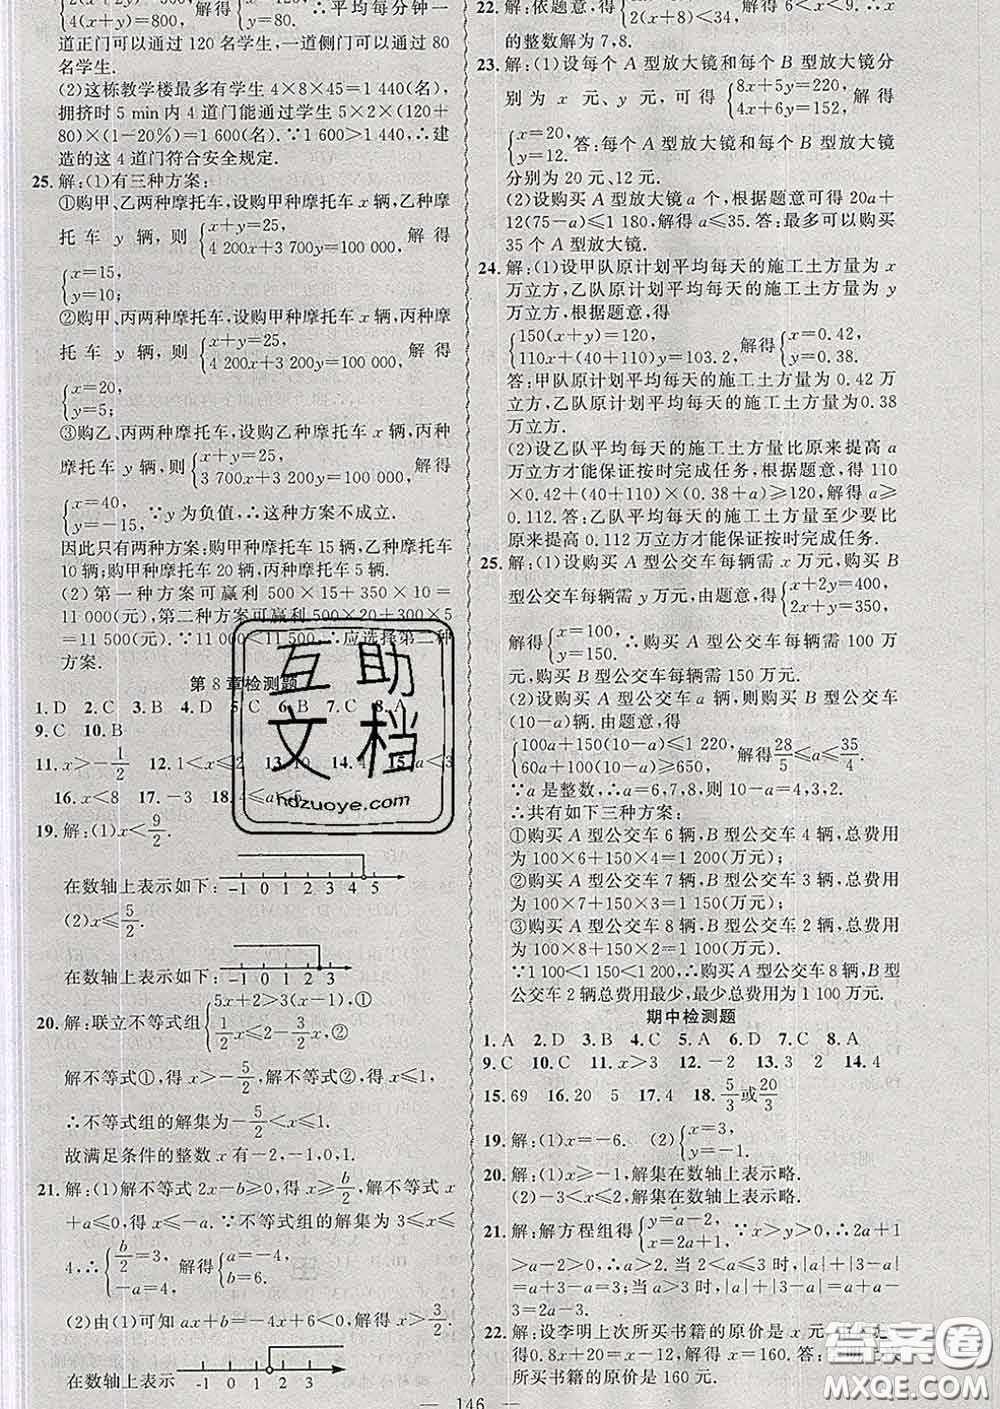 4(x+y)=800, 解得 y=80. ∴平均每分钟一
道正门可以通过 120 名学生,一道侧门可以通过 80
名学生.
(2)这栋教学楼最多有学生 4×8×45=1 440(名),
拥挤时 5 min 内 4 道门能通过学生 5×2×(120+
80)×(1-20%)=1 600(名). ∵1 600>1 440,∴建
造的这 4 道门符合安全规定.
25. 解:(1)有三种方案:
①购甲、乙两种摩托车,设购甲种摩托车 x 辆,乙种
摩托车 y 辆,则 {x+y=25, 4 200x+3 700y=100 000, 解得
{x=15, y=10;
②购甲、丙两种摩托车,设购甲种摩托车 x 辆,丙种
摩托车 y 辆,则 {x+y=25, 4 200x+3 200y=100 000, 解得
{x=20, y=5;
③购乙、丙两种摩托车,设购乙种摩托车 x 辆,丙种
摩托车 y 辆,则 {x+y=25, 3 700x+3 200y=100 000, 解得
{x=40, y=-15, ∵y 为负值,∴这种方案不成立.
因此只有两种方案:购甲种摩托车 15 辆,乙种摩托车
10 辆;购甲种摩托车 20 辆,丙种摩托车 5 辆.
(2)第一种方案可赢利 500×15+350×10=
11 000(元),第二种方案可赢利 500×20+300×5
=11 500(元). ∵11 000<11 500,∴应选择第二种
方案.
第 8 章检测题
1. D 2. C 3. B 4. D 5. C 6. B 7. C 8. A
9. C 10. B
11. x>-1/2 12. 1<x≤2 13. 10 14. 4 15. a<3
16. x<8 17. -3 18. 4≤a<5
19. 解:(1)x<9/2.
在数轴上表示如下: -1 0 1 2 3 4 5
(2)x≤5/2.
在数轴上表示如下: -1 0 1 2 3
20. 解:联立不等式组{5x+2>3(x-1),① 1/2x≤2-3/2x,②
解不等式①,得 x>-5/2,解不等式②,得 x≤1,
∴不等式组的解集为-5/2<x≤1.
故满足条件的整数 x 有-2,-1,0,1.
21. 解:(1)解不等式 2x-b≥0,得 x≥b/2,解不等式 x
+a≤0,得 x≤-a. ∵不等式组的解集为 3≤x≤
4,∴{b/2=3, -a=4, ∴{a=-4, b=6.
(2)由(1)可知 ax+b<0 为-4x+6<0,得 x>3/2.
在数轴上表示 -1 0 1 2 3
22. 解:依题意,{2(x+8)<34, 解得 6<x<9. ∴x
的整数解为 7,8.
23. 解:(1)设每个 A 型放大镜和每个 B 型放大镜分
别为 x 元、y 元,可得 {8x+5y=220, 4x+6y=152, 解得
{x=20, y=12. 答:每个 A 型放大镜和每个 B 型放大镜
分别为 20 元、12 元.
(2)设购买 A 型放大镜 a 个,根据题意可得 20a+
12(75-a)≤1 180,解得 a≤35. 答:最多可以购买
35 个 A 型放大镜.
24. 解:(1)设甲队原计划平均每天的施工土方量为 x
万立方,乙队原计划平均每天的施工土方量为 y
万立方,根据题意,得
{150(x+y)=120, 110x+(40+110)y=103.2, 解得{x=0.42, y=0.38.
答:甲队原计划平均每天的施工土方量为 0.42 万
立方,乙队原计划平均每天的施工土方量为 0.38
万立方.
(2)设乙队平均每天的施工土方量比原来提高 a
万立方才能保证按时完成任务,根据题意,得 110
×0.42+(40+110)×(0.38+a)≥120,解得 a≥
0.112. 答:乙队平均每天的施工土方量至少要比
原来提高 0.112 万立方才能保证按时完成任务.
25. 解:(1)设购买 A 型公交车每辆需 x 万元,购买 B
型公交车每辆需 y 万元,由题意,得{x+2y=400, 2x+y=350,
解得{x=100, y=150. ∴购买 A 型公交车每辆需 100 万
元,购买 B 型公交车每辆需 150 万元.
(2)设购买 A 型公交车 a 辆,则购买 B 型公交车
(10-a)辆. 由题意,得
{100a+150(10-a)≤1 220, 60a+100(10-a)≥650, 解得28/5≤a≤35/4.
∵a 是整数,∴a=6,7,8,则 10-a=4,3,2.
∴共有如下三种方案:
①购买 A 型公交车 6 辆,B 型公交车 4 辆,总费用
为 100×6+150×4=1 200(万元);
②购买 A 型公交车 7 辆,B 型公交车 3 辆,总费用
为 100×7+150×3=1 150(万元);
③购买 A 型公交车 8 辆,B 型公交车 2 辆,总费用
为 100×8+150×2=1 100(万元).
∵1 100<1 150<1 200,∴购买 A 型公交车 8 辆,B 型
公交车 2 辆总费用最少,最少为 1 100 万元.
期中检测题
1. A 2. D 3. D 4. C 5. A 6. D 7. C 8. A
9. C 10. C 11. x>3 12. -2 13. 3 2 14. 4
15. 69 16. 20 5 17. 4 18. 5/3或20/3
19. 解:(1)x=-6. (2){x=3, y=-1.
20. 解:(1)x≥-1,解集在数轴上表示略.
(2)-3<x≤2,解集在数轴上表示略.
21. 解:解方程组得{y=a-2, x=2a+1, ∵x>y>0,∴{2a+1
>a-2, a-2>0, ∴a>2. 当 2<a≤3 时,|a|+|3-a|
=a+3-a=3;当 a>3 时,|a|+|3-a|=a+a-3
=2a-3.
22. 解:设李明上次所买书籍的原价是 x 元,
得0.8x+20=x-12,解得 x=160. 答:李明上次
所买书籍的原价是 160 元.
— 146 —
互助文档
hdzuoye.com
答案圈
MXQE.COM